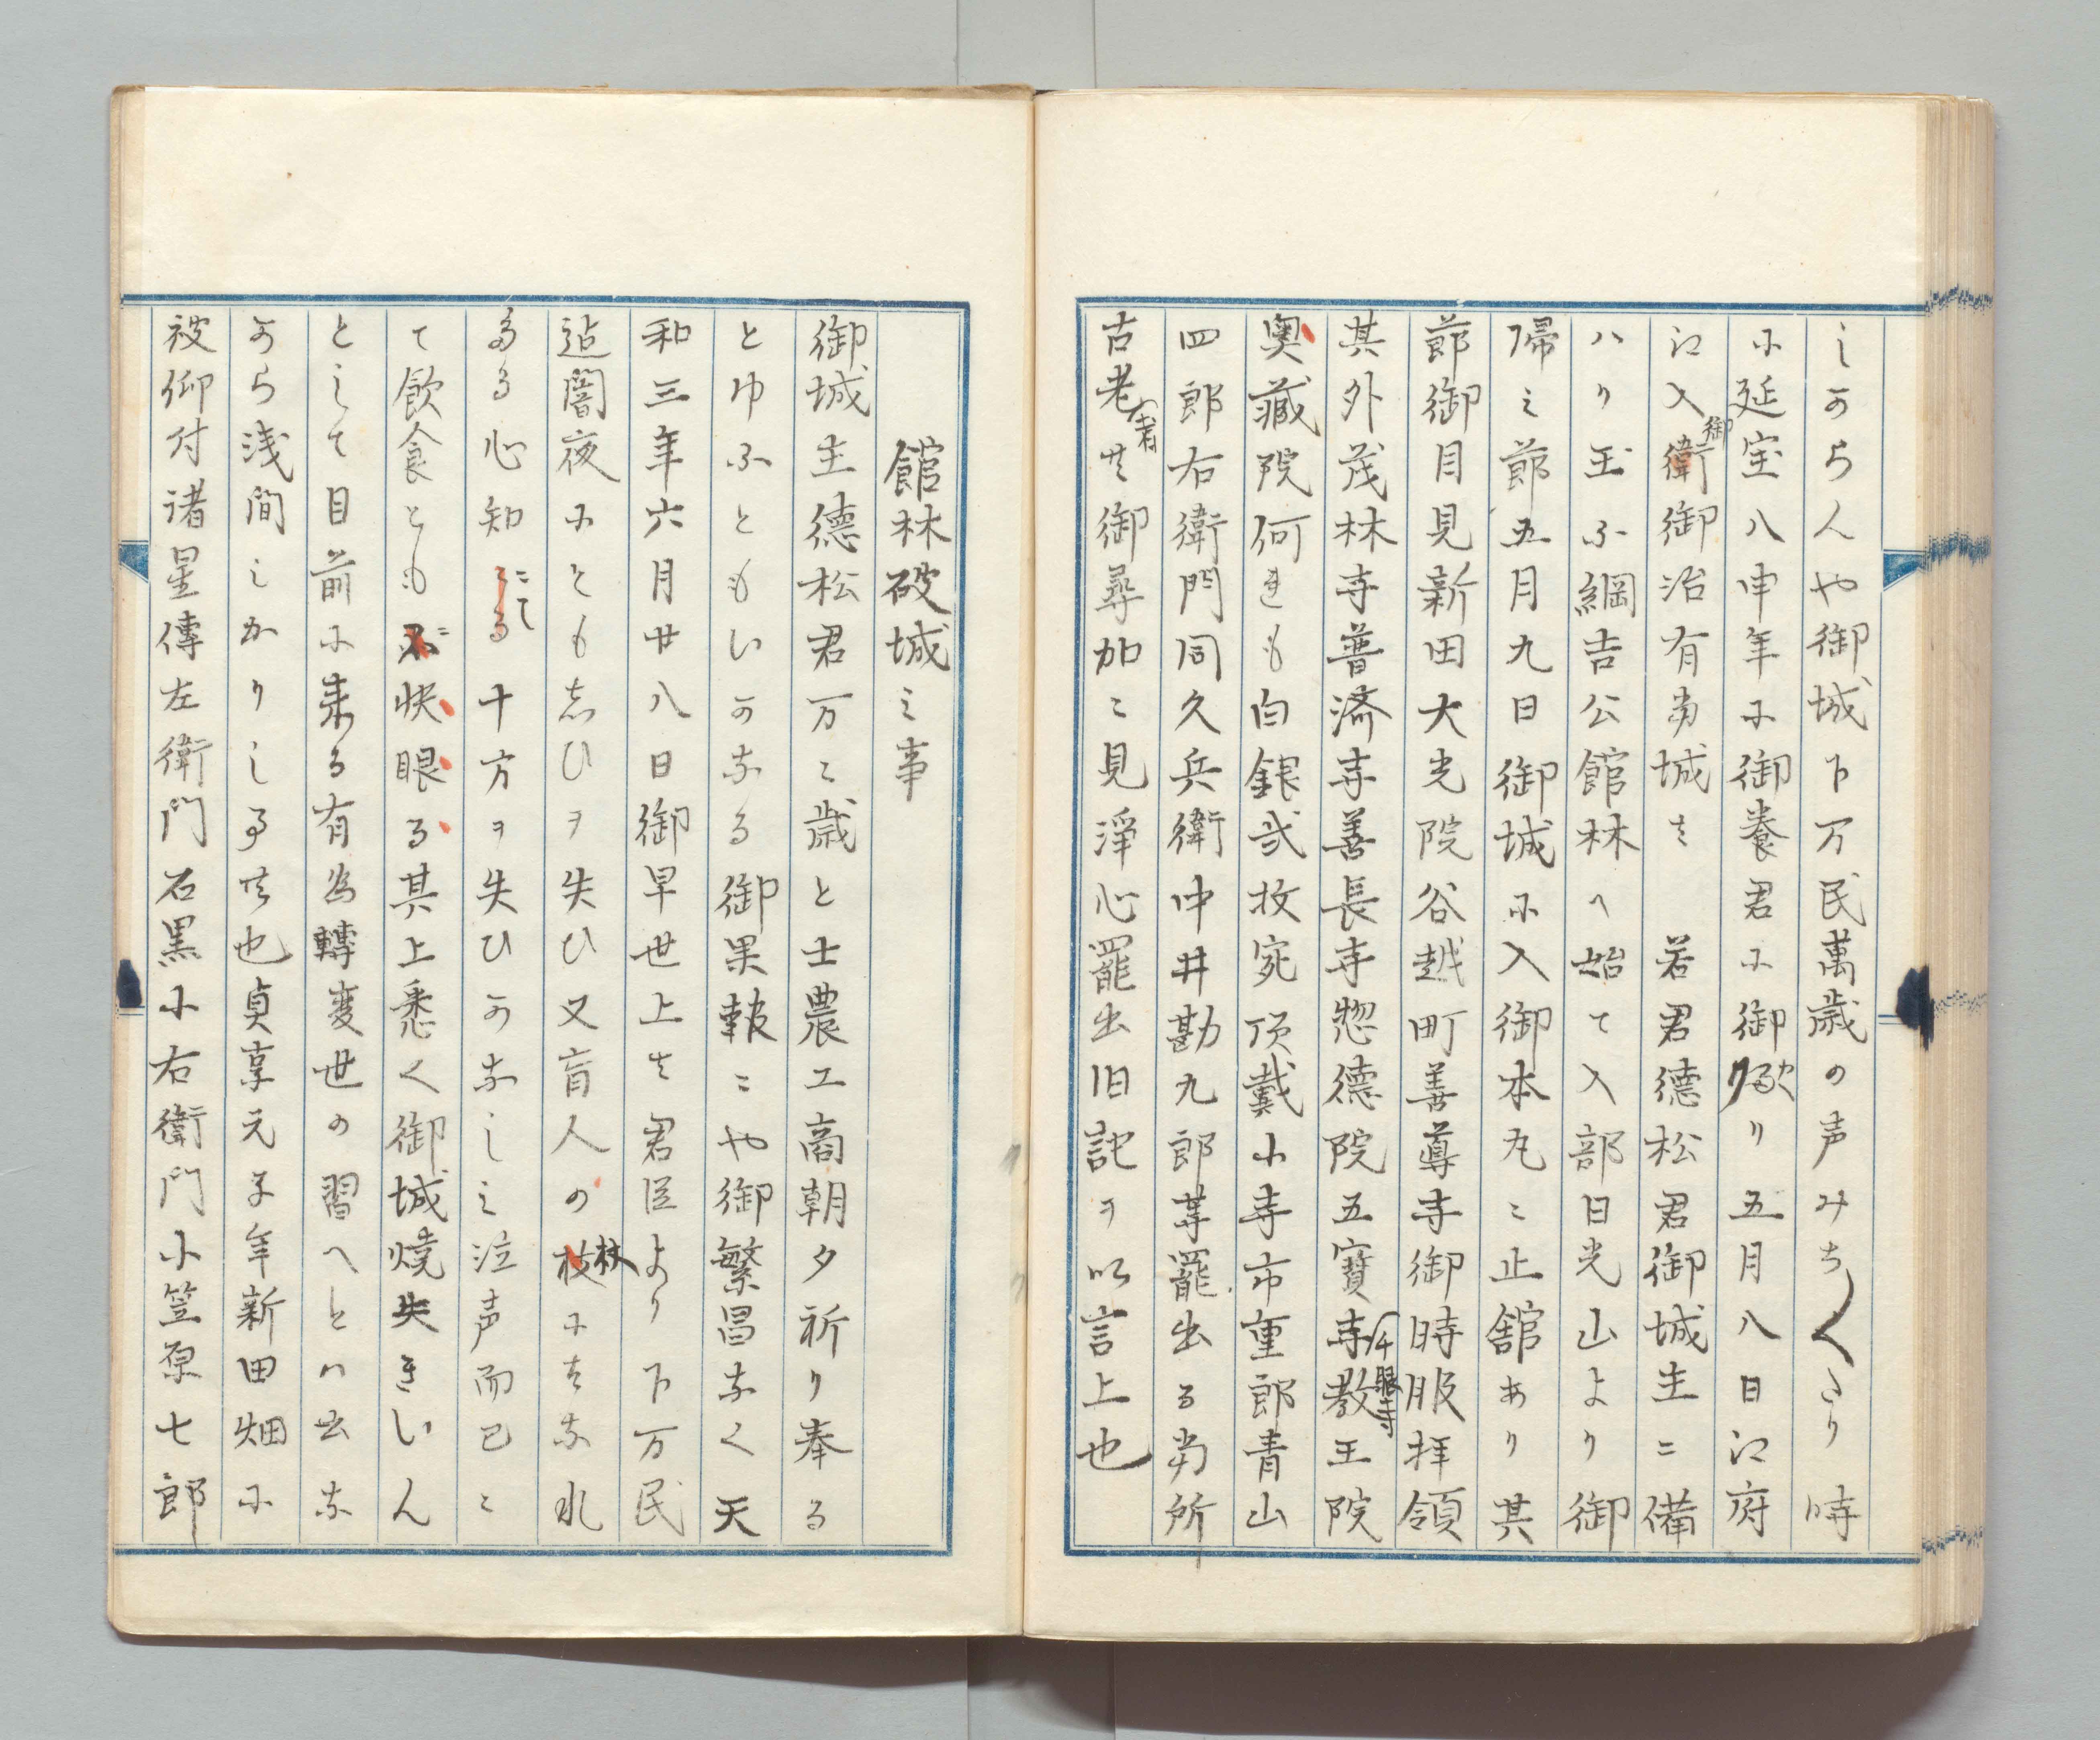 しからんや御城下万民萬歳の声みち〳〵たり時
ニ延宝八申年ニ御養君ニ御成り五月八日江府
江入御衛御治有当城者　若君徳松君御城主ニ備
ハり玉ふ綱吉公館林へ始て入部日光山より御
帰之節五月九日御城ニ入御本丸ニ止舘あり其
節御目見新田大光院谷越町善導寺御時服拝領
其外茂林寺普済寺善長寺惣徳院五寶寺（千眼寺教王院
奥蔵院何れも白銀弐枚宛頂戴小寺市重郎青山
四郎右衛門同久兵衛中井勘九郎等罷出る当所
古老（者共御尋加々見浄心罷出旧記ヲ以言上也
館林破城之事
御城主徳松君万々歳と士農工商朝夕祈り奉る
とゆふともいかなる御果報ニや御繁昌なく天
和三年六月廿八日御早世上者君臣より下万民
迠闇夜ニともしひヲ失ひ又盲人の枝杖ニはなれ
たる心知こるニて十方ヲ失ひかなし之泣声而已ニ
て飲食とも不ニ快眼る其上悉く御城焼失きいん
として目前ニ来る有為轉変世の習へとハ云な
から浅間しかりし事共也貞享元子年新田畑ニ
被仰付諸星傳左衛門石黒小右衛門小笠原七郎